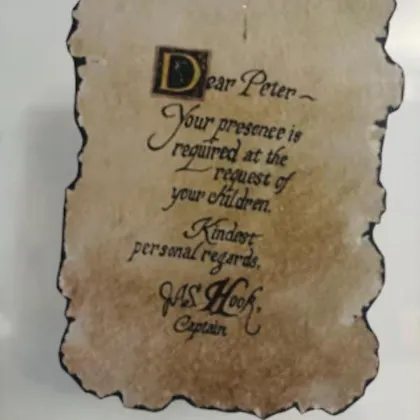 Dear Peter ~
Your presence is
required at the
request of
your children.
Kindest
personal regards,
JAS. Hook,
Captain